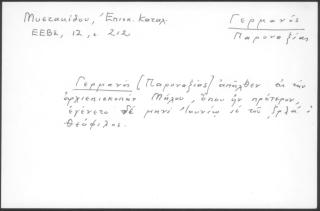 Μυστακίδου, Ἐπισκ. Καταλ.
ΕΕΒΣ, 12, σ 212
Γερμανός
Παροναξίας
Γερμανὸς [Παροναξίας] ἀπῆλθεν εἰς τὴν
ἀρχιεπισκοπὴν Μήλου, ὅπου ἦν πρότερον,
ἐγένετο δὲ μηνὶ Ἰουνίῳ ιε τοῦ ͵ζρλα' ὁ
Θεόφιλος.